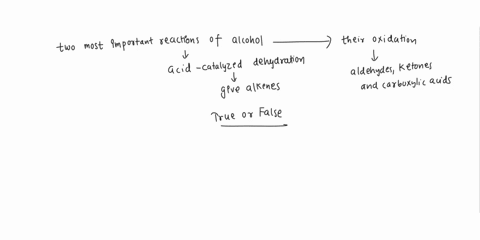 two most important reactions of alcohol → their oxidation
↓ ↓
acid-catalyzed dehydration
aldehydes, ketones
and carboxylic acids
↓
give alkenes
True or False